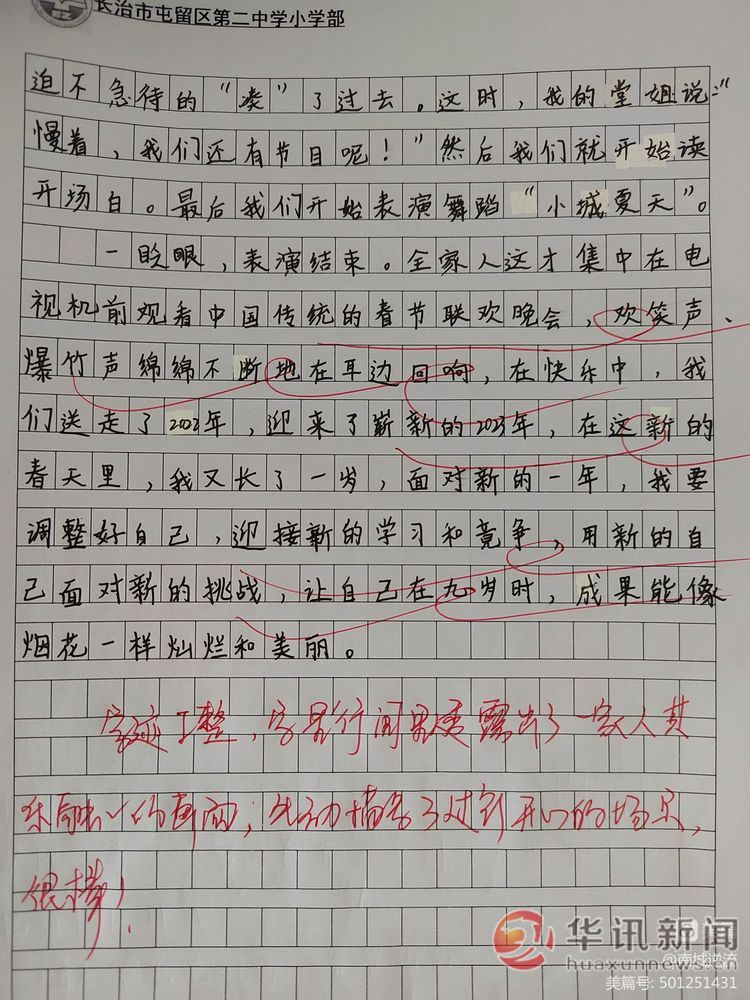 长治市屯留区第二中学小学部
迫不急待的“凑”了过去。这时，我的堂姐说：“
慢着，我们还有节目呢！”然后我们就开始读
开场白。最后我们开始表演舞蹈“小城夏天”。
一眨眼，表演结束。全家人这才集中在电
视机前观看中国传统的春节联欢晚会，欢笑声、
爆竹声绵绵不断地在耳边回响，在快乐中，我
们送走了2022年，迎来了崭新的2023年，在这新的
春天里，我又长了一岁，面对新的一年，我要
调整好自己，迎接新的学习和竞争，用新的自
己面对新的挑战，让自己在九岁时，成果能像
烟花一样灿烂和美丽。
字迹工整，字里行间里透露出了一家人其
乐融融的画面；生动描写了过年开心的场景，
很棒！
华讯新闻
huaxunnews.cn
@南城逆流
美篇号: 501251431